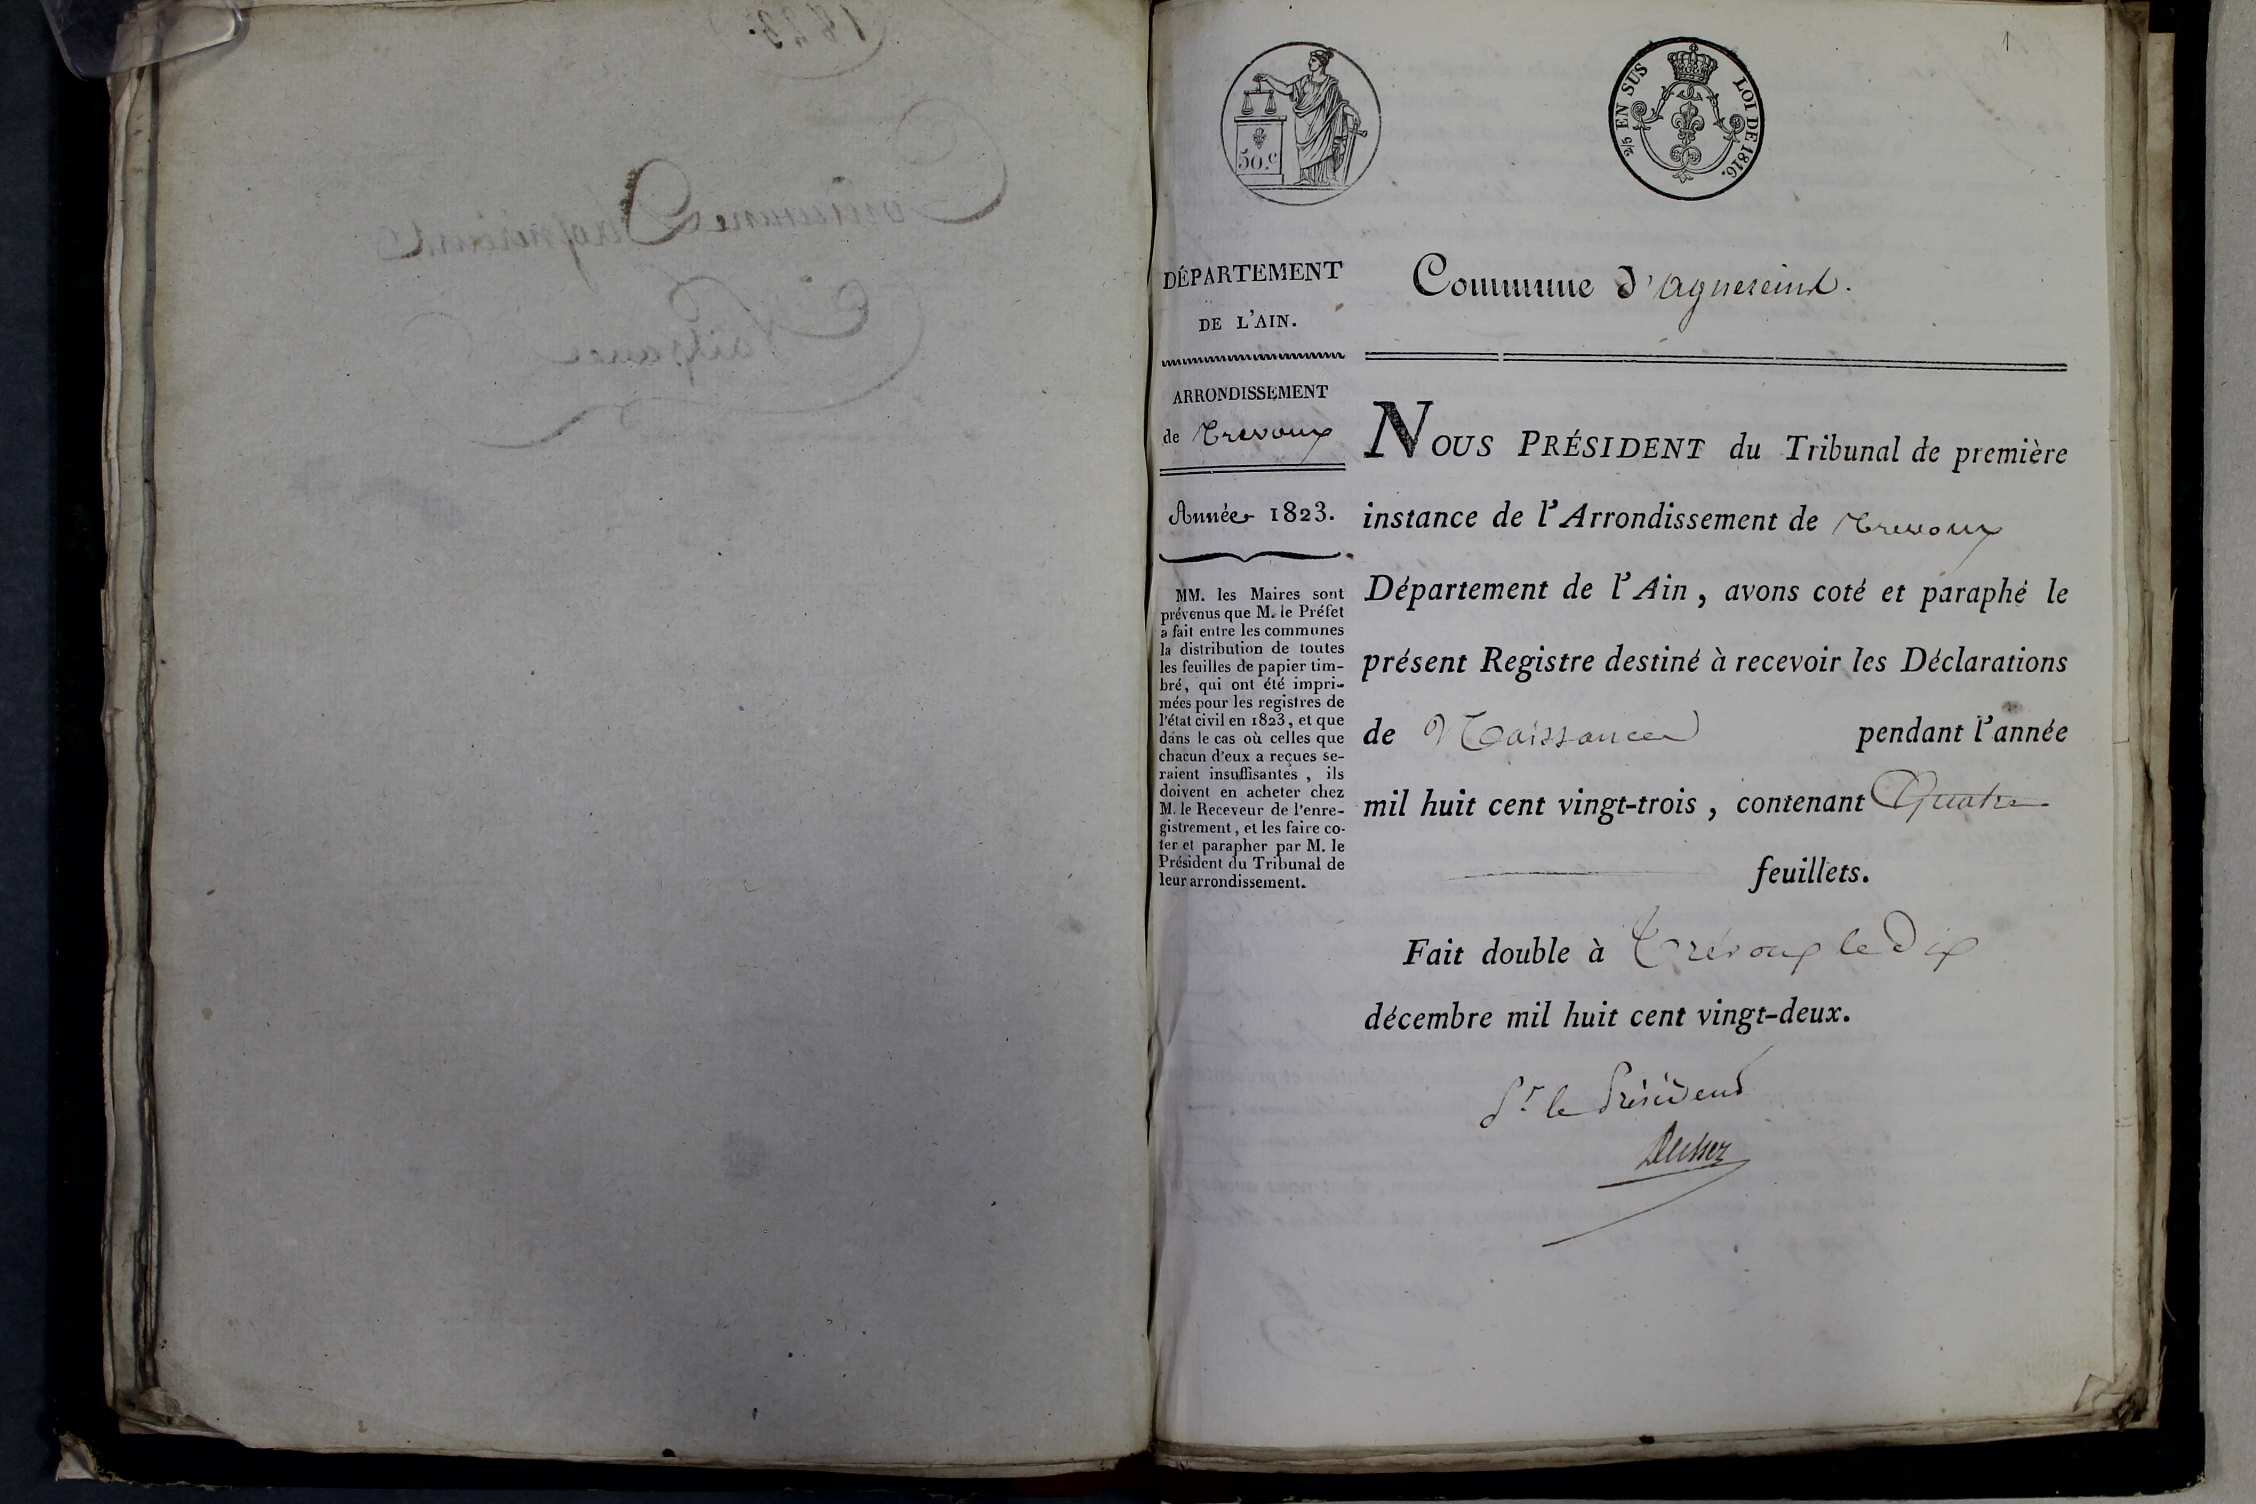 1823.
Commune d'agnereint
Naissance
1
50.c
2/5 EN SUS LOI DE 1816.
DÉPARTEMENT
DE L'AIN.
ARRONDISSEMENT
de Trevoux
Année 1823.
MM. les Maires sont
prévenus que M. le Préfet
a fait entre les communes
la distribution de toutes
les feuilles de papier tim-
bré, qui ont été impri-
mées pour les registres de
l'état civil en 1823, et que
dans le cas où celles que
chacun d'eux a reçues se-
raient insuffisantes, ils
doivent en acheter chez
M. le Receveur de l'enre-
gistrement, et les faire co-
ter et parapher par M. le
Président du Tribunal de
leur arrondissement.
Commune d'agnereint.
NOUS PRÉSIDENT du Tribunal de première
instance de l'Arrondissement de Trevoux
Département de l'Ain, avons coté et paraphé le
présent Registre destiné à recevoir les Déclarations
de Naissance pendant l'année
mil huit cent vingt-trois, contenant Quatre
feuillets.
Fait double à Trévoux le dix
décembre mil huit cent vingt-deux.
Pr. le Président